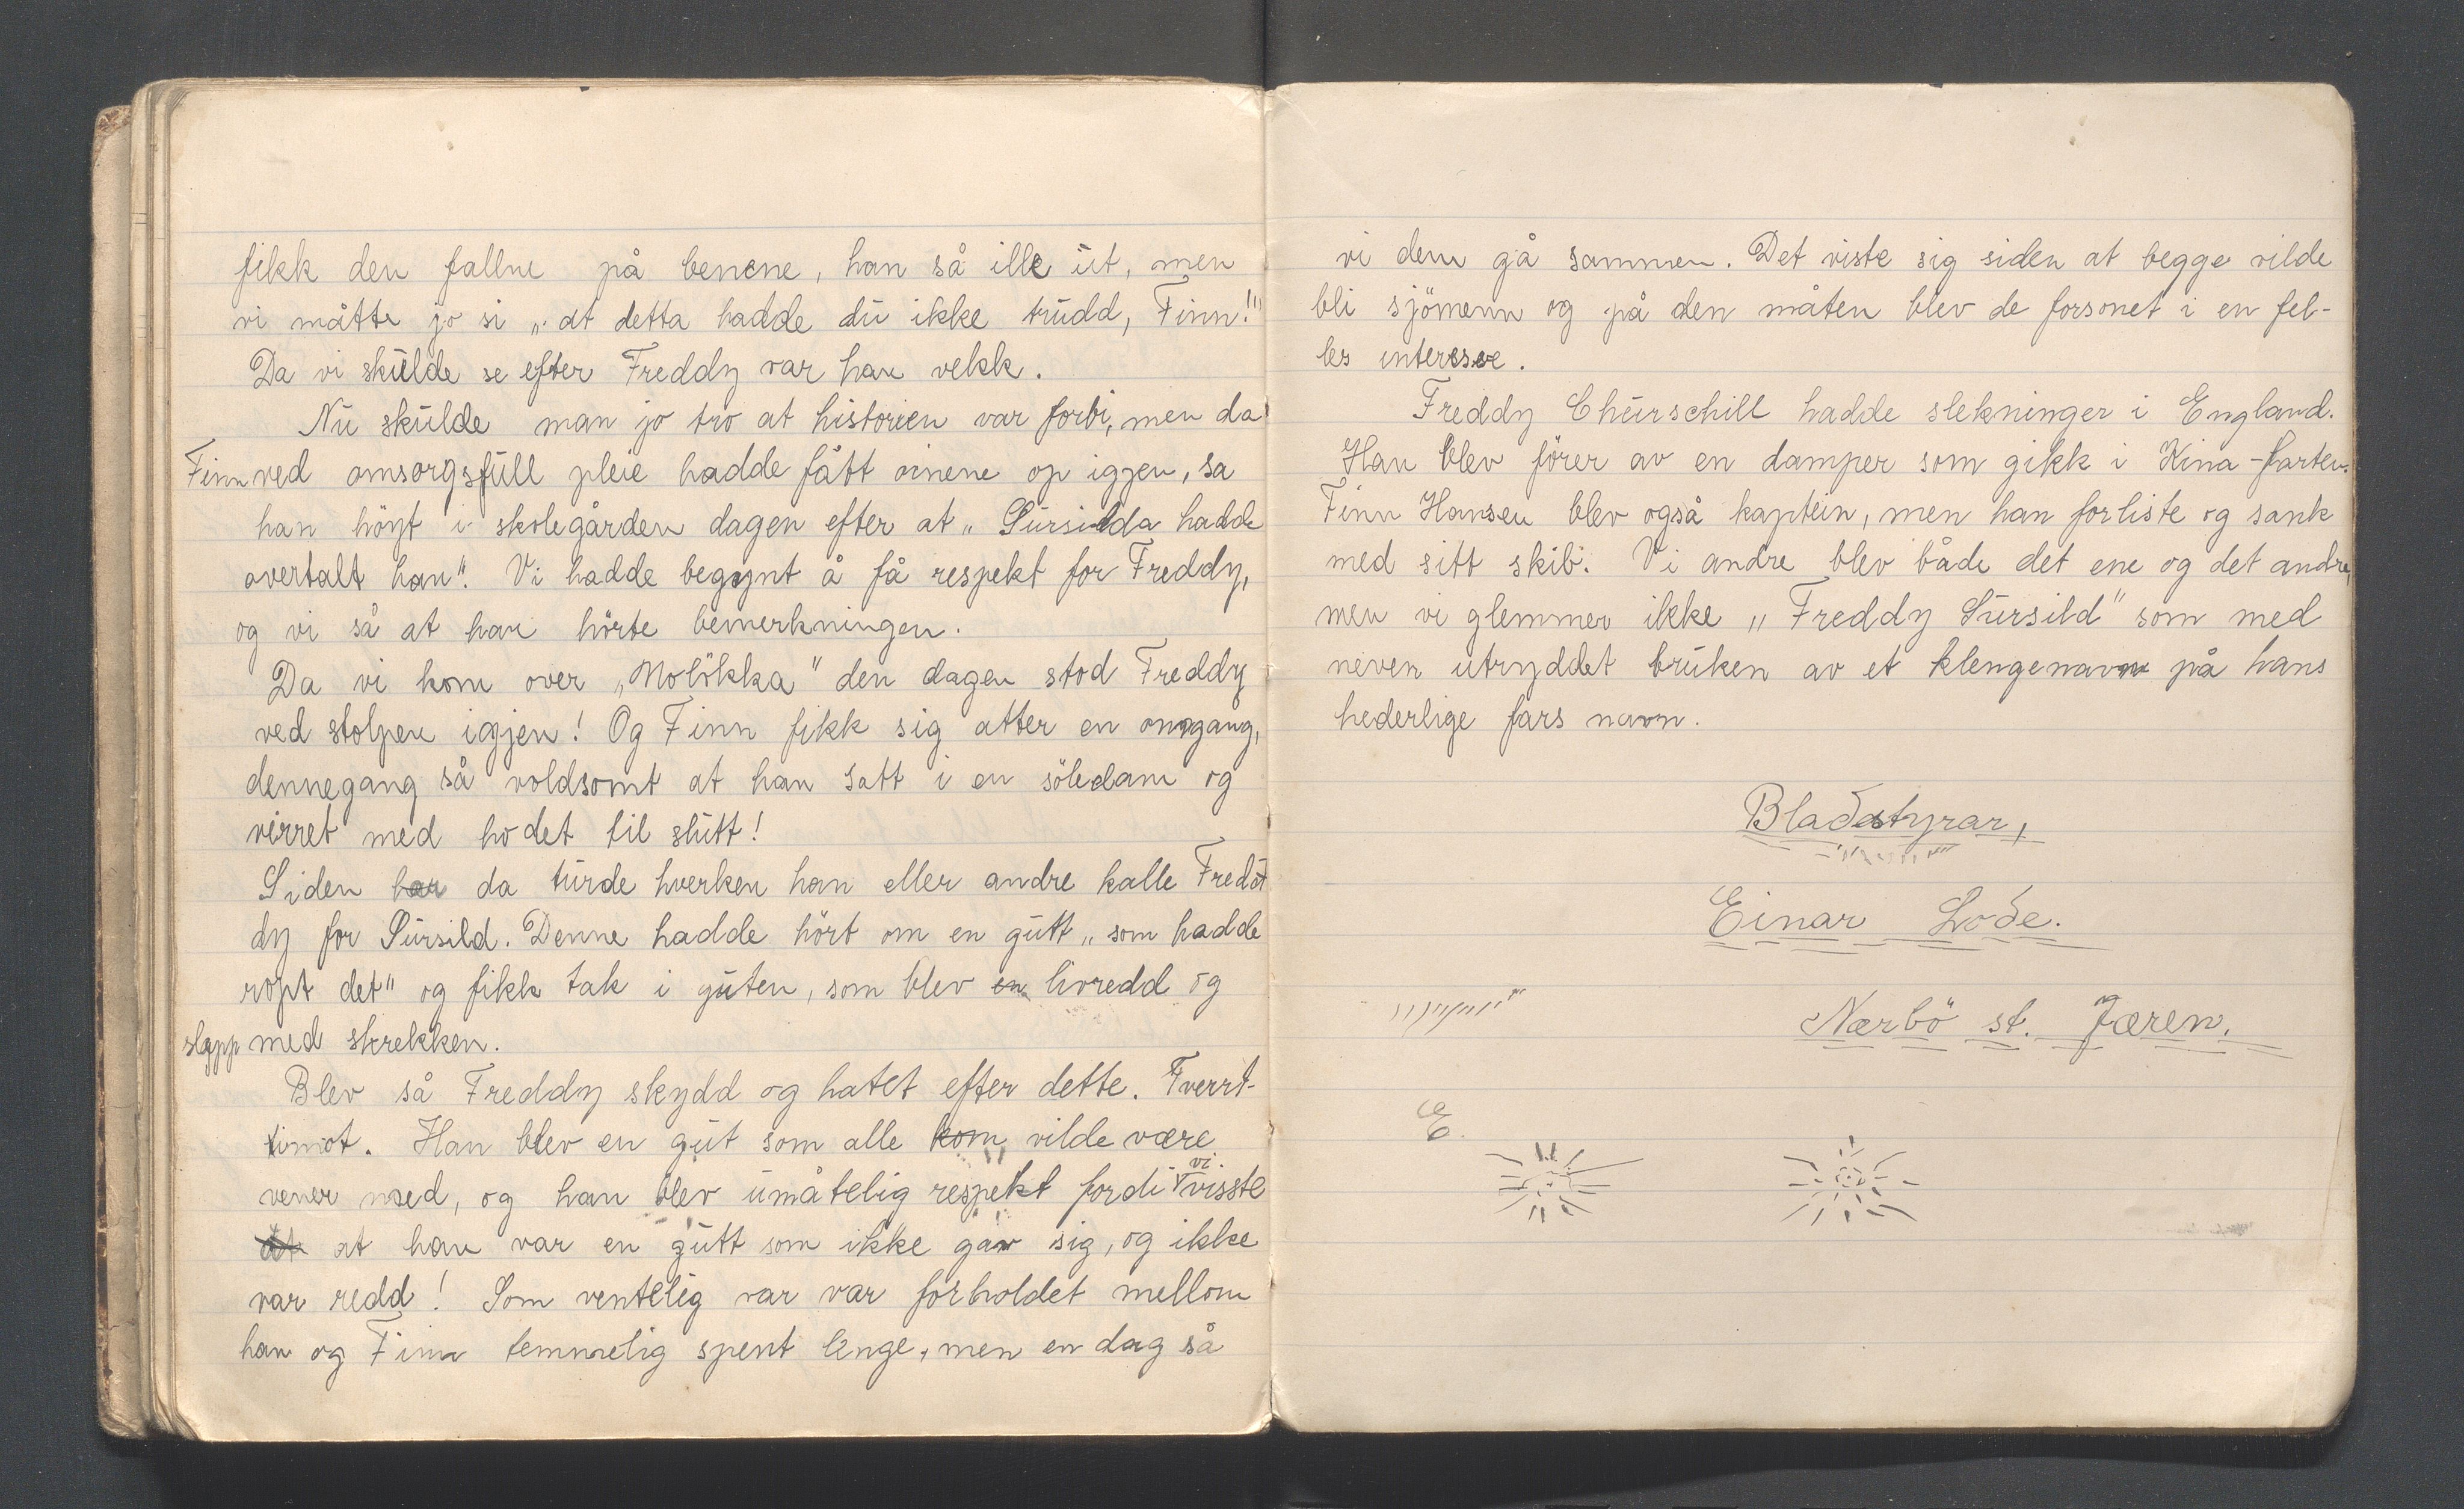 fikk den fallne på benene, han så ille ut, men
vi måtte jo si „at detta hadde du ikke trudd, Finn!"
Da vi skulde se efter Freddy var han vekk.
Nu skulde man jo tro at historien var forbi, men da
Finn ved omsorgsfull pleie hadde fått oinene op igjen, sa
han höyt i skolegården dagen efter at „Sursilda hadde
overtalt han". Vi hadde begynt å få respekt for Freddy,
og vi så at han hörte bemerkningen.
Da vi kom over „Molökka" den dagen stod Freddy
ved stolpen igjen! Og Finn fikk sig atter en omgang,
dennegang så voldsomt at han satt i en söledam og
virret med hodet til slutt!
Siden har da turde hverken han eller andre kalle Fred-
dy for Sursild. Denne hadde hört om en gutt „som hadde
ropt det" og fikk tak i guten, som blev en livredd og
slapp med skrekken.
Blev så Freddy skydd og hatet efter dette. Tvert-
timot. Han blev en gut som alle kom vilde være
vener med, og han blev umåtelig respekt fordi vi visste
at at han var en gutt som ikke gav sig, og ikke
var redd! Som ventelig var var forholdet mellom
han og Finn temmelig spent lenge, men en dag så
vi dem gå sammen. Det viste sig siden at begge vilde
bli sjömenn og på den måten blev de forsonet i en fel-
les interesse.
Freddy Churschill hadde slekninger i England.
Han blev förer av en damper som gikk i Kina-farten.
Finn Hansen blev også kaptein, men han forliste og sank
med sitt skib. Vi andre blev både det ene og det andre,
men vi glemmer ikke „Freddy Sursild" som med
neven utryddet bruken av et klengenavn på hans
hederlige fars navn.
Bladstyrar,
Einar Lode.
Nærbö st. Jæren.
E.